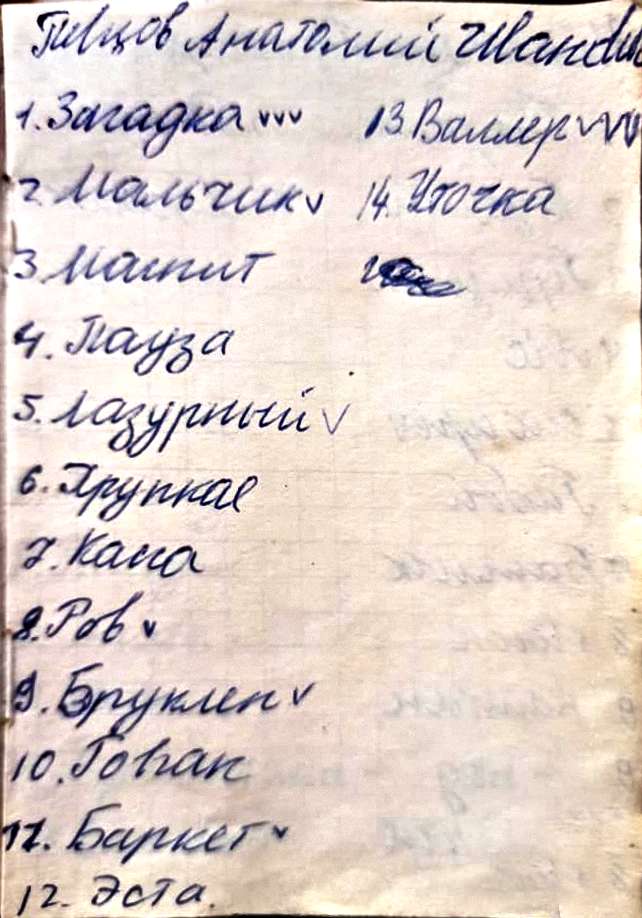 Певцов Анатолий Иванов
1. Загадка vvv
2. Мальчик v
3. Магнит
4. Пауза
5. Лазурный v
6. Хрупкае
7. Каса
8. Ров v
9. Бруклен v
10. Гопак
11. Баркет v
12. Эста.
13. Валлер vvvv
14. Уточка